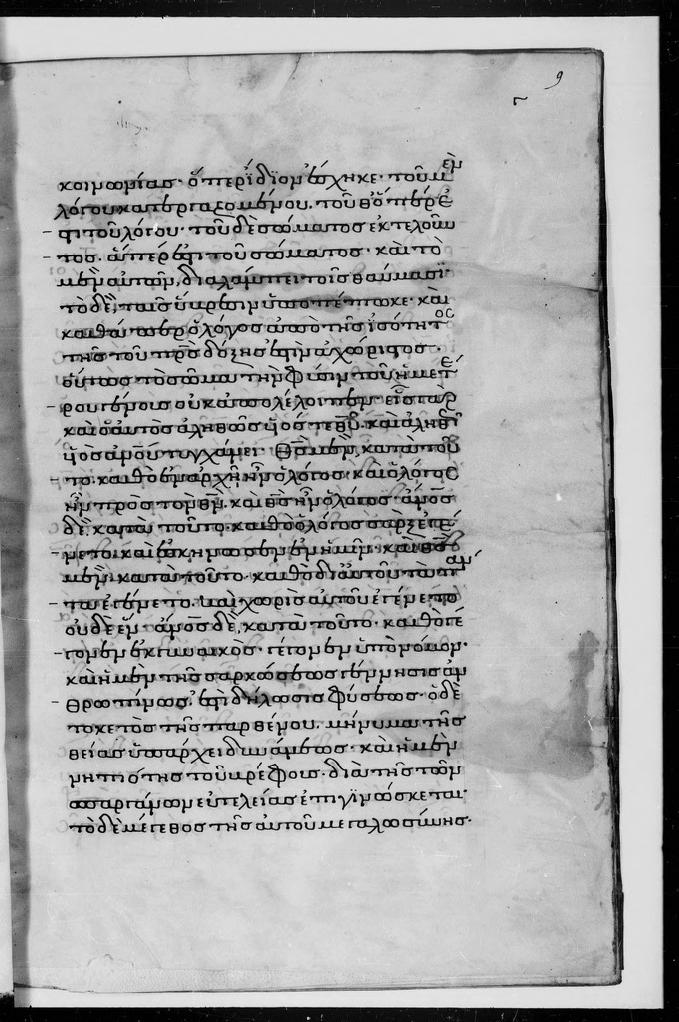 9
κοινωνίας· ὅπερ ἴδιον ἔσχηκε· τοῦ μὲν
λόγου κατεργαζομένου· τοῦθ ὅπερ ἐ
στι τοῦ λόγου· τοῦ δὲ σώματος ἐκτελοῦν
τος· ἅπερ ἐστι τοῦ σώματος· καὶ τὸ
μὲν αὐτῶν, διαλάμπει τοῖς θαύμασϊ·
τὸ δὲ, ταῖς ὕβρεσιν ὑποπέπτωκε· καὶ
καθάπερ ὁ λόγος ἀπὸ τῆς ἰσότητος
τῆς τοῦ πρς δόξης ἐστὶν ἀχώριστος·
οὕτως τὸ σῶμα τὴν φύσιν τοῦ ἡμετέ
ρου γένους οὐκ ἀπολέλοιπεν· εἷς γὰρ
καὶ ὁ αὐτὸς ἀληθῶς υἱός τε θυ· καὶ ἀληθεῖ
υἱὸς ἀνου τυγχάνει· θς μὲν, κατὰ τοῦ
το· καθὸ ἐν ἀρχῆ ἦν ὁ λόγος· καὶ ὁ λόγος
ἦν πρὸς τὸν θν· καὶ θς ἦν ὁ λόγος· ἀνος
δὲ, κατὰ τοῦτο· καθὸ ὁ λόγος σὰρξ ἐγέ
νετο· καὶ ἐσκήνωσεν ἐν ἡμῖν· καὶ θς
μὲν κατὰ τοῦτο· καθὸ δι αὐτοῦ τὰ πάν
τα ἐγένετο· καὶ χωρὶς αὐτοῦ ἐγένετο
οὐδὲ ἕν· ἀνος δὲ, κατὰ τοῦτο· καθὸ γέ
γονεν ἐκ γυναικὸς· γέγονεν ὑπὸ νόμον·
καὶ ἡ μὲν τῆς σαρκώσεως γέννησις ἀν
θρωπίνως, ἐστὶ δήλωσις φύσεως· ὁ δὲ
τοκετὸς τῆς παρθένου, μήνυμα τῆς
θείας ὑπάρχει δυνάμεως· καὶ ἡ μὲν
νηπιότης τοῦ βρέφους· διὰ τῆς τῶν
σπαργάνων εὐτελείας ἐπιγϊνώσκεται·
τὸ δὲ μέγεθος τῆς αὐτοῦ μεγαλωσύνης·